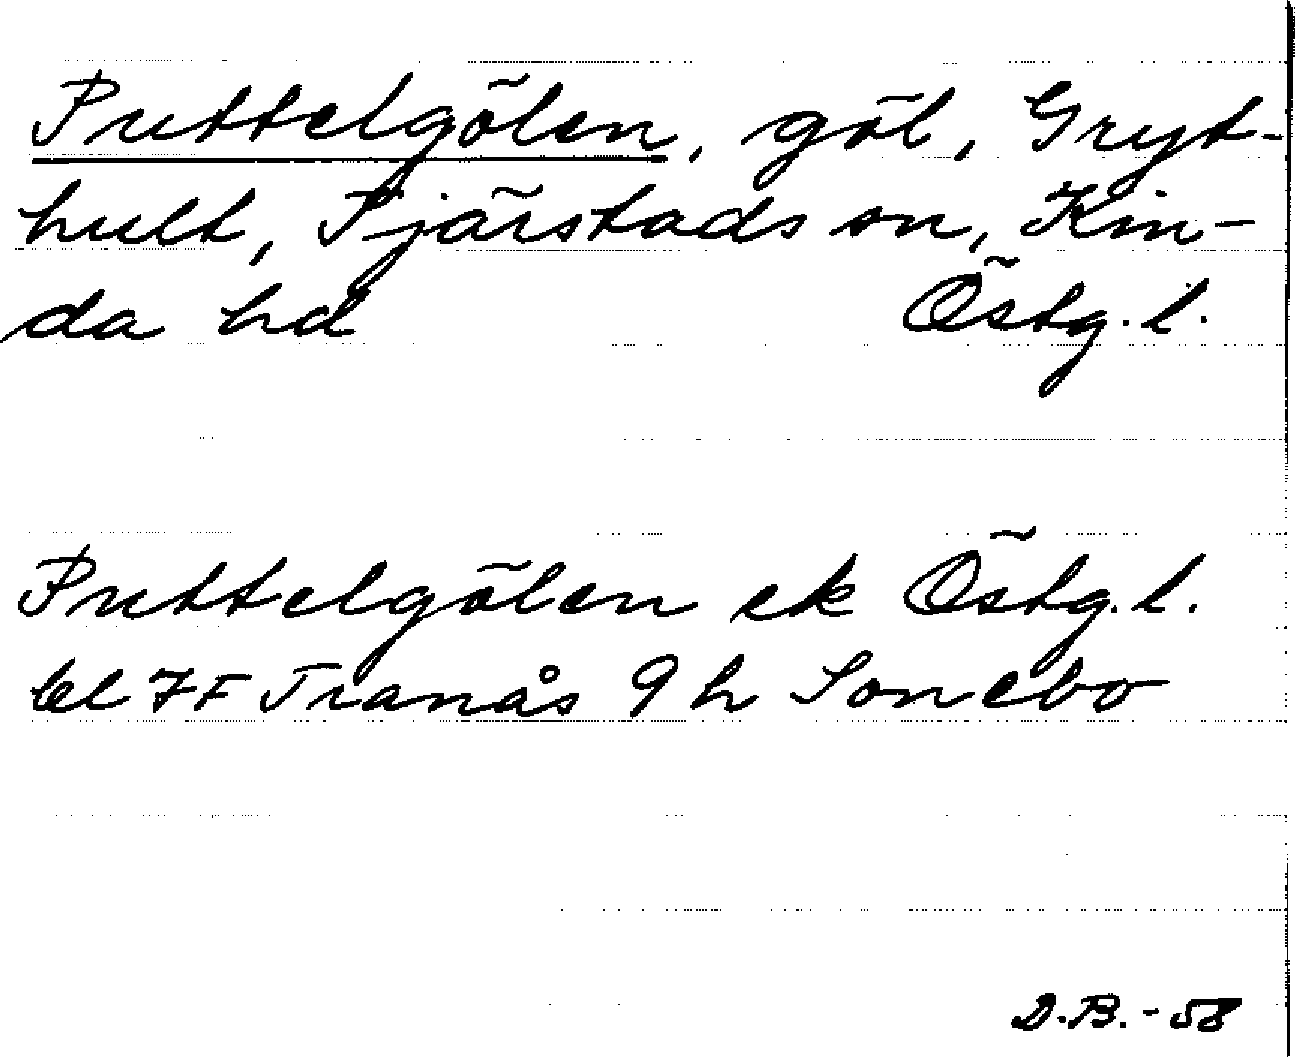 Puttelgölen, göl, Gryt-
hult, Tjärstads sn, Kin-
da hd Östg. l.
Puttelgölen ek Östg. l.
bl 7F Tranås 9 h Sonebo
D.B. - 58